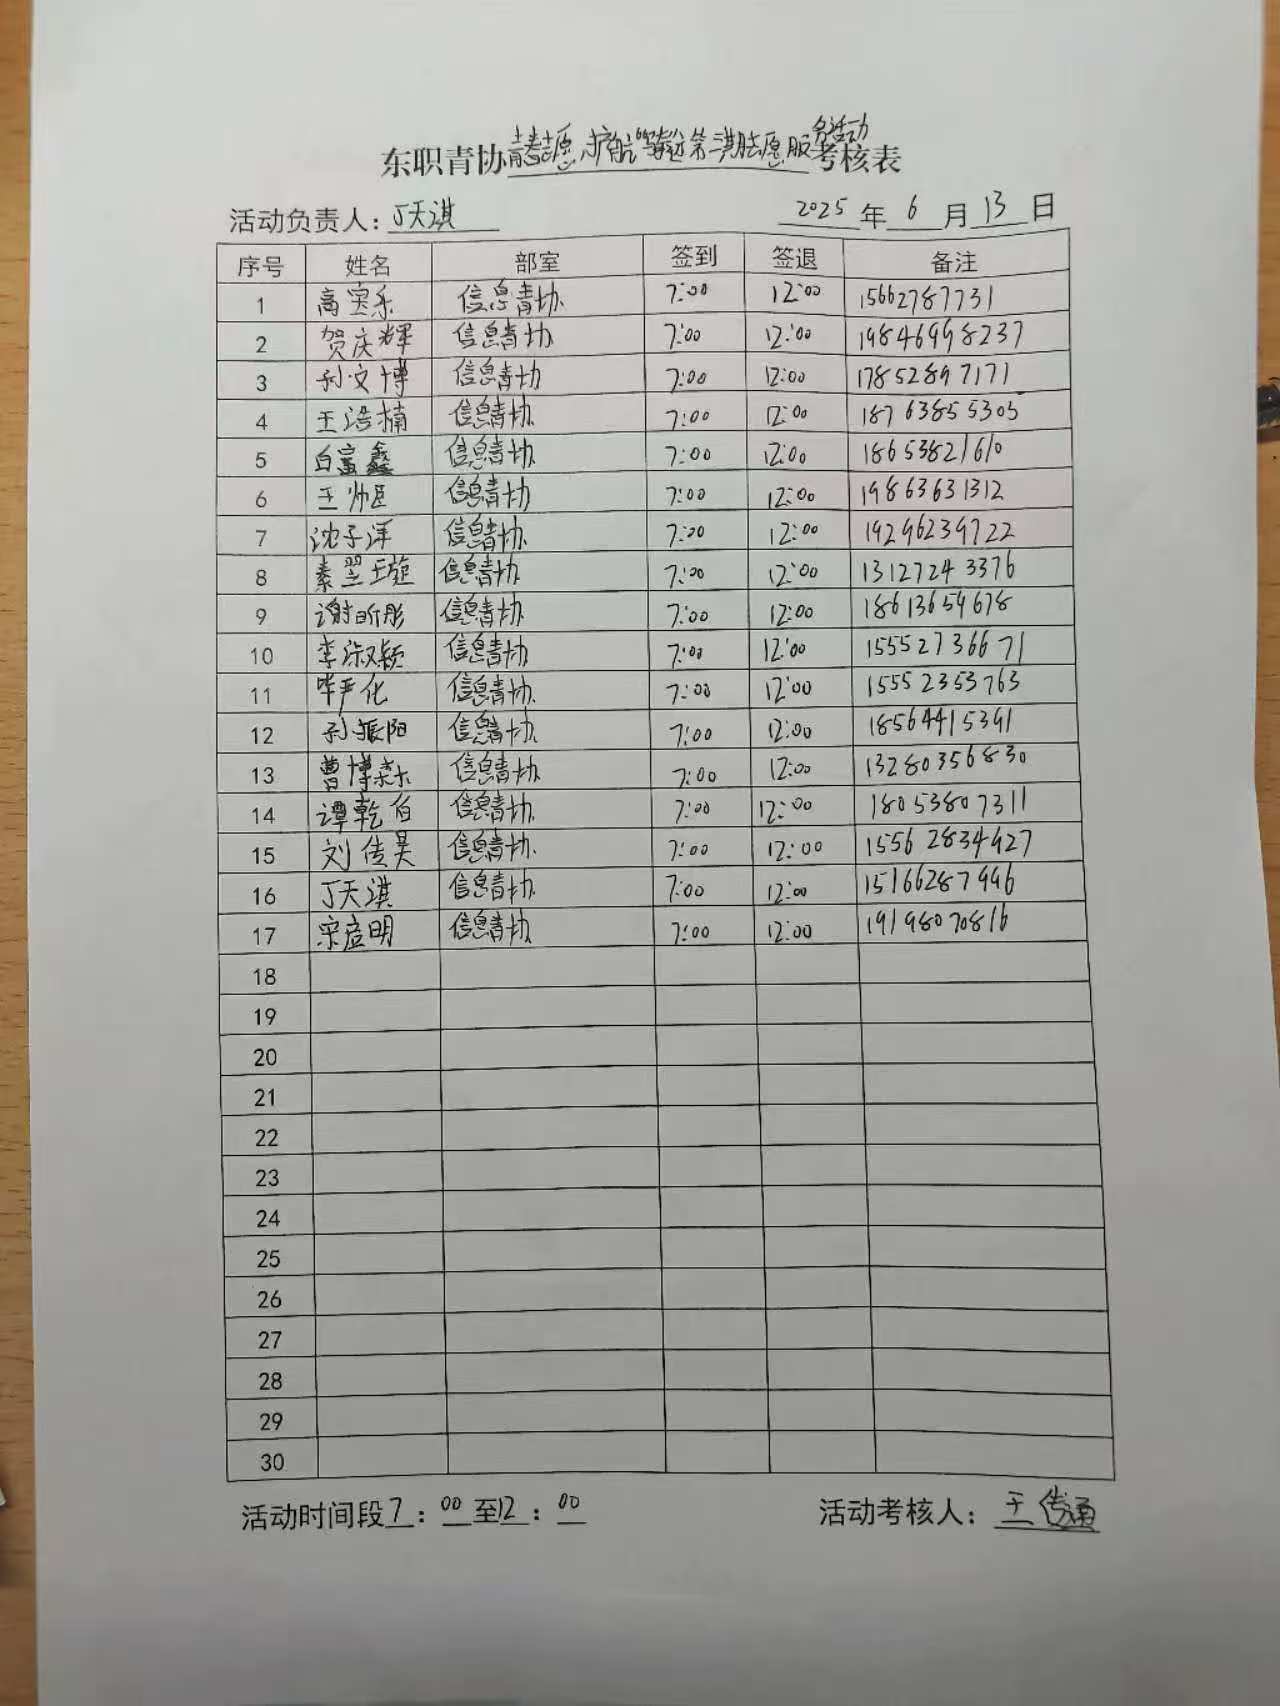 东职青协青春志愿 护航"驾"趁第二期志愿服务活动考核表
活动负责人：丁天淇 2025年6月13日
序号 姓名 部室 签到 签退 备注
1 高宝乐 信息青协 7:00 12:00 15662787731
2 贺庆辉 信息青协 7:00 12:00 19846998237
3 孙文博 信息青协 7:00 12:00 17852897171
4 王浩楠 信息青协 7:00 12:00 18763855303
5 白富鑫 信息青协 7:00 12:00 18653821610
6 王帅臣 信息青协 7:00 12:00 19863631312
7 沈子洋 信息青协 7:00 12:00 19296239722
8 秦翌璇 信息青协 7:00 12:00 13127243376
9 谢昕彤 信息青协 7:00 12:00 18613654678
10 李淑颖 信息青协 7:00 12:00 15552736671
11 毕严化 信息青协 7:00 12:00 15552353763
12 孙振阳 信息青协 7:00 12:00 18564415391
13 曹博森 信息青协 7:00 12:00 13280356830
14 谭乾伯 信息青协 7:00 12:00 18053807311
15 刘传昊 信息青协 7:00 12:00 15562834927
16 丁天淇 信息青协 7:00 12:00 15166287996
17 宋彦明 信息青协 7:00 12:00 19198070816
18
19
20
21
22
23
24
25
26
27
28
29
30
活动时间段7：00至12：00 活动考核人：王传通